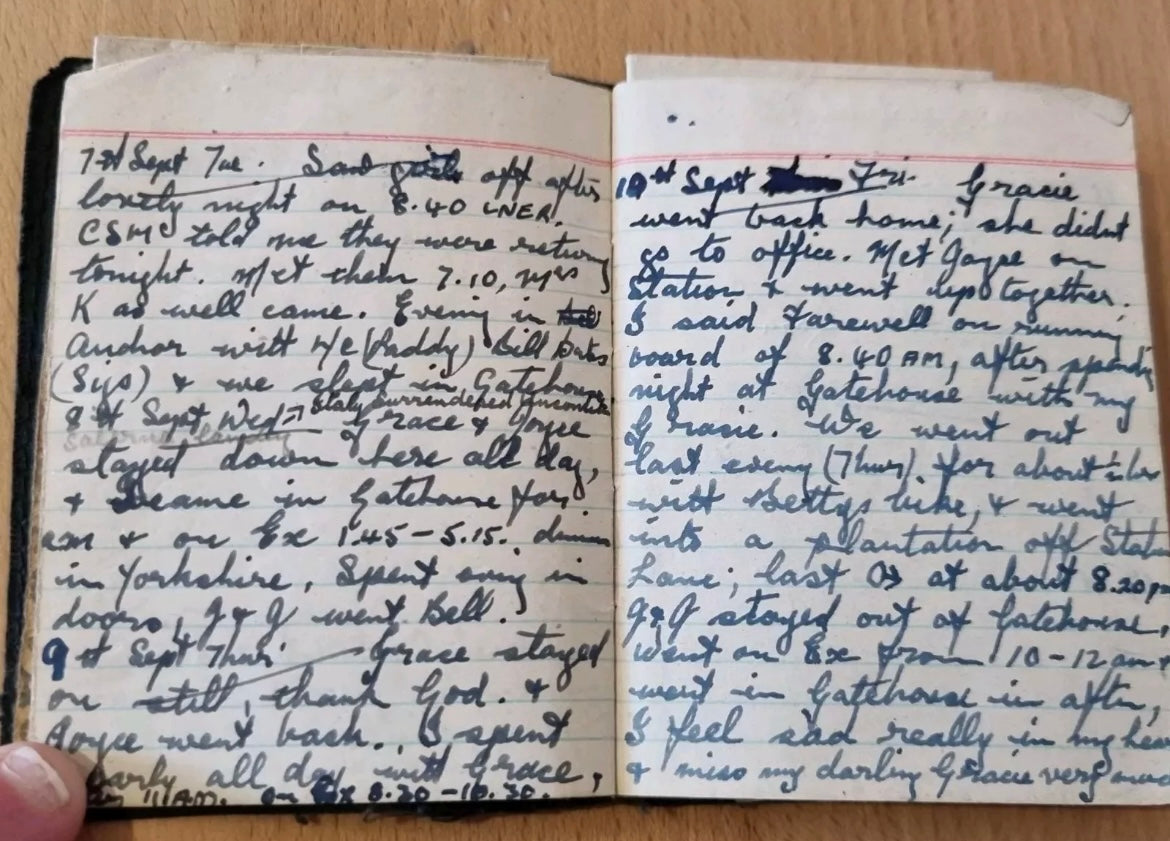 7th Sept Tue. Saw girls off after
lovely night on 8.40 LNER.
CSMC told me they were returng
tonight. M/et them 7.10, Mrs
K as well came. Evening in
Anchor with H/C (Paddy) Bill
(Sigs) & we slept in Gatehouse
Italy surrendered
8th Sept Wed Grace & Joyce
Salerno landing
stayed down here all day,
& came in Gatehouse for
am & on Ex 1.45 – 5.15.
in Yorkshire, Spent eveng in
doors, J & G went Bell.
9th Sept Thur Grace stayed
on still, thank God. &
Joyce went back., I spent
nearly all day with Grace,
11 A.M. on Ex 8.30 – 10.30.
10th Sept Fri. Gracie
went back home; she didnt
go to office. M/et Joyce on
Station & went up together.
I said Farewell on running
board of 8.40 AM, after spending
night at Gatehouse with my
Gracie. We went out
last eveng (Thur) for about
with Bettys bike, & went
into a plantation off Statn
Lane; last at about 8.20 p
G & J stayed out of Gatehouse,
went on Ex from 10 – 12 am &
went in Gatehouse in aftn,
I feel sad really in my hea
& miss my darling Gracie very muc